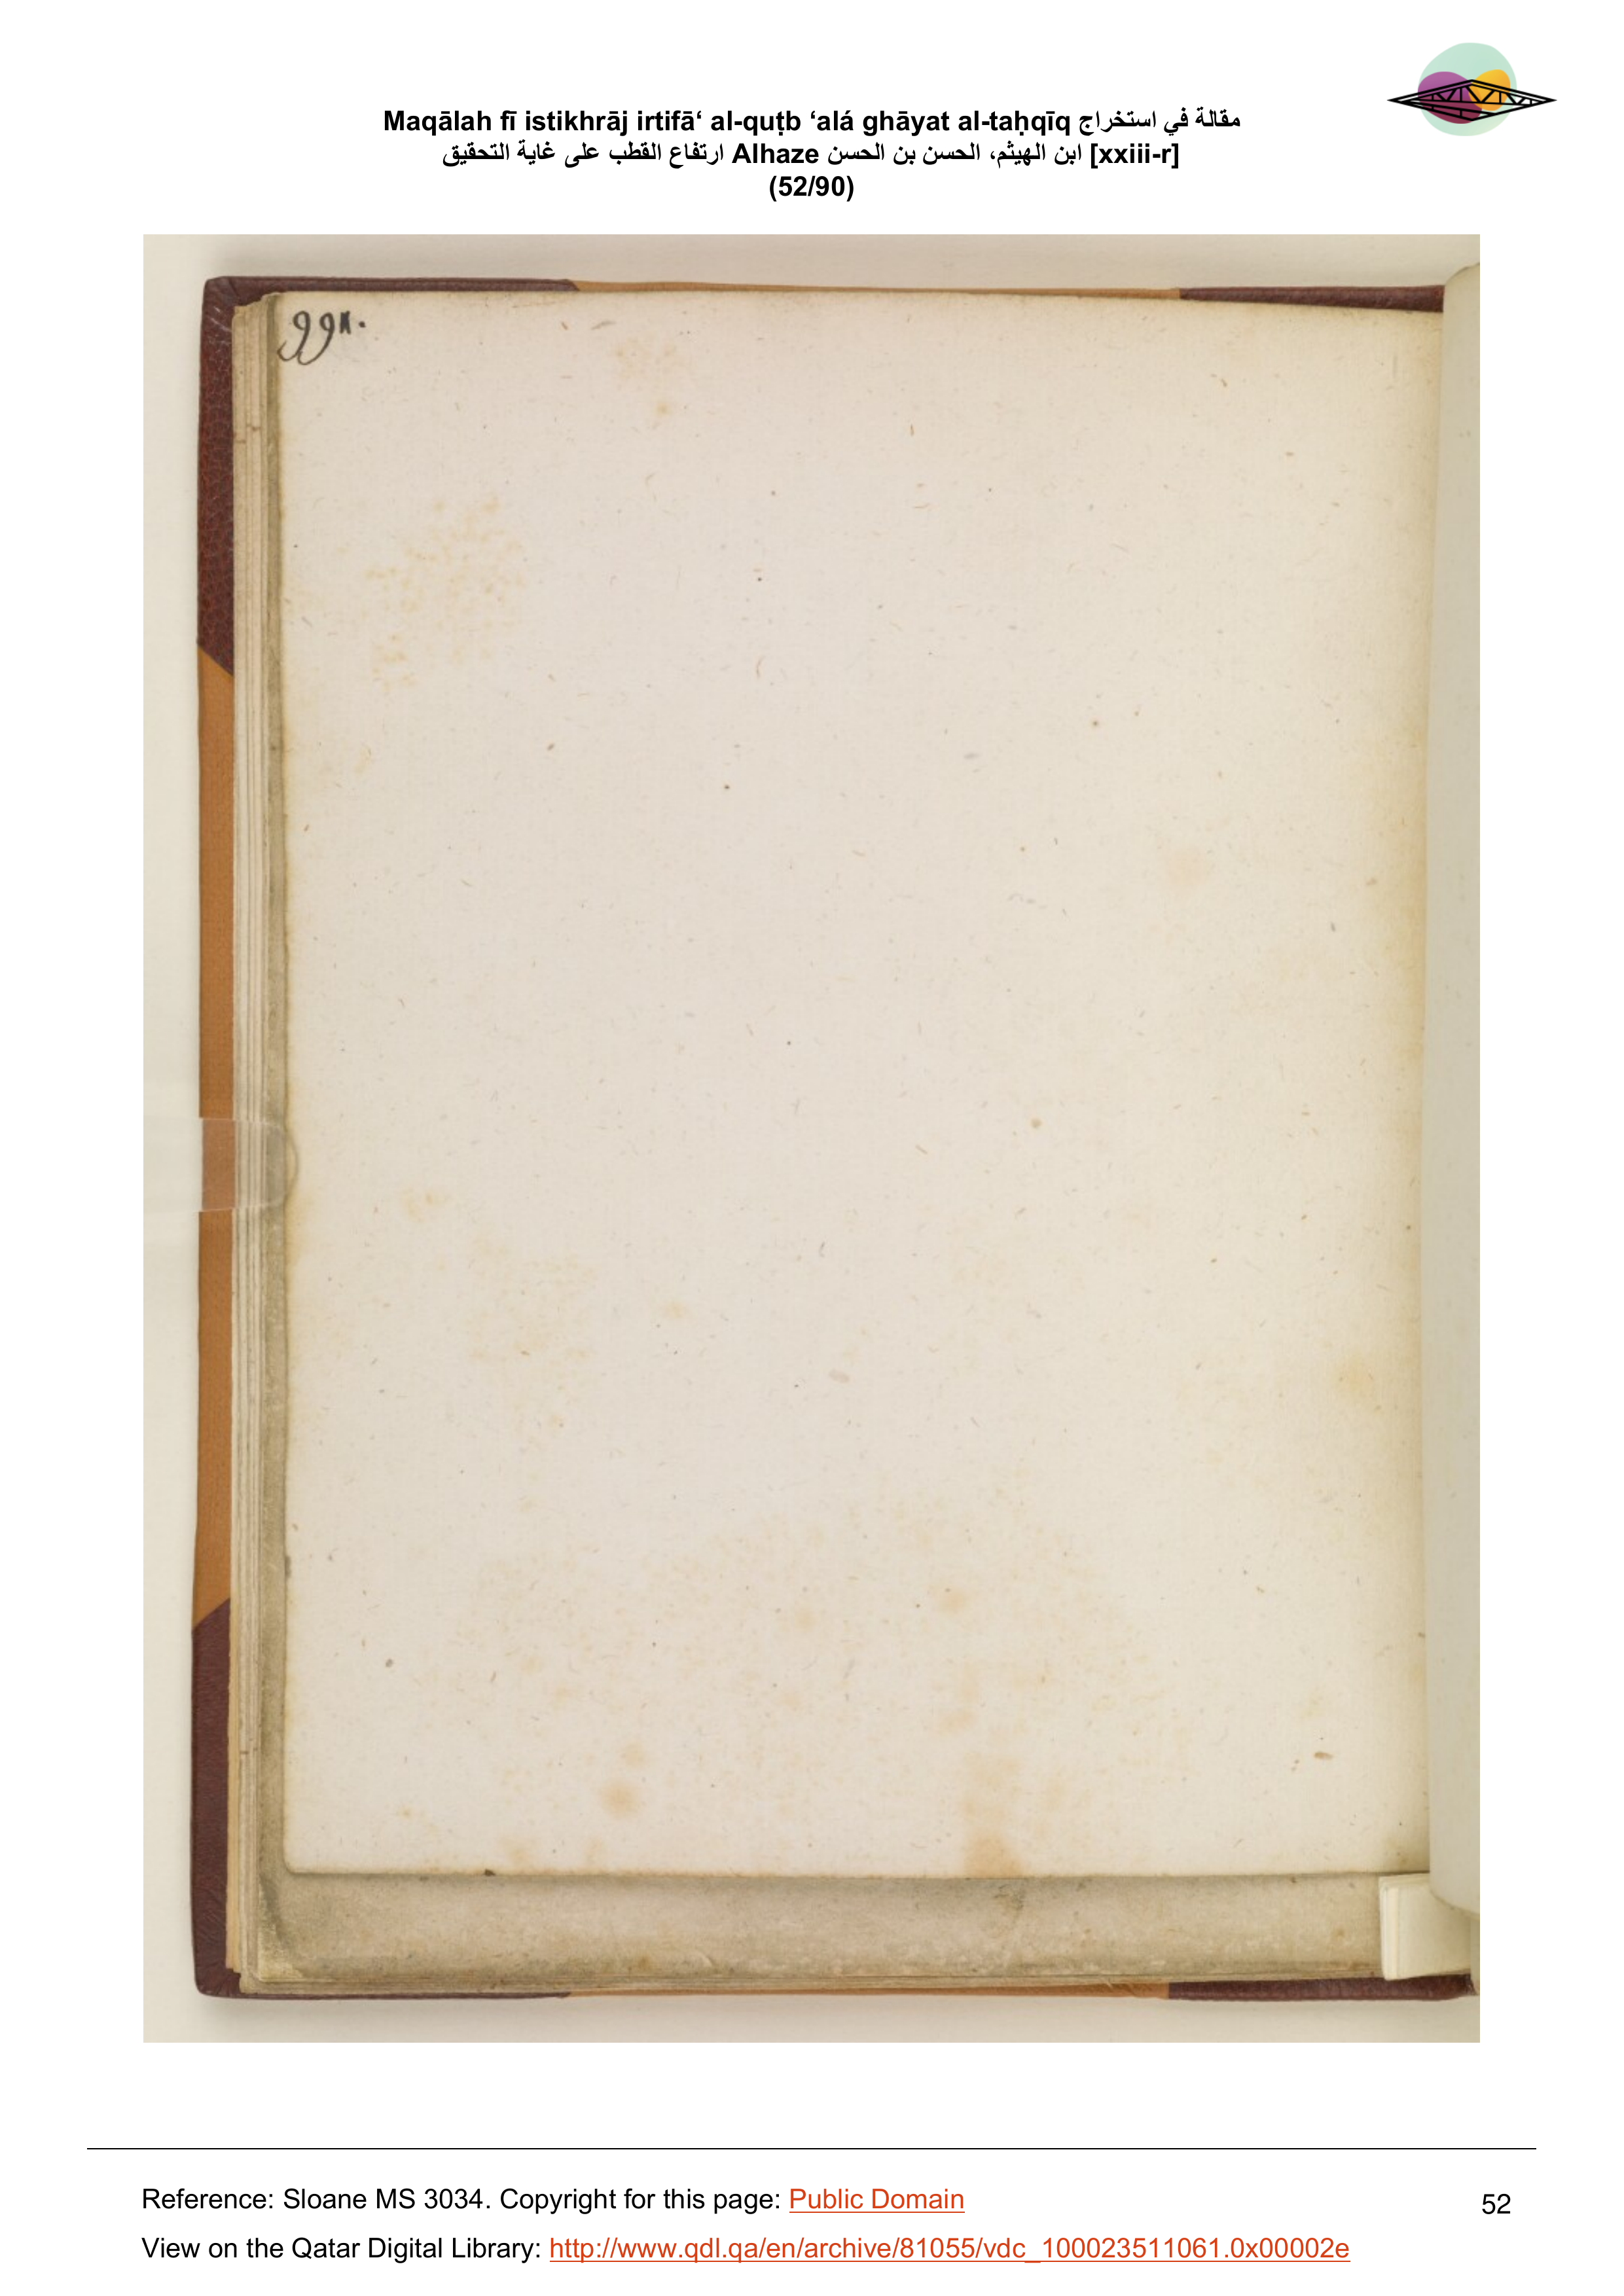 Maqālah fī istikhrāj irtifā‘ al-quṭb ‘alá ghāyat al-taḥqīq مقالة في استخراج
ارتفاع القطب على غاية التحقيق Alhaze ابن الهيثم، الحسن بن الحسن [xxiii-r]
(52/90)
Reference: Sloane MS 3034. Copyright for this page: Public Domain
52
View on the Qatar Digital Library: http://www.qdl.qa/en/archive/81055/vdc_100023511061.0x00002e